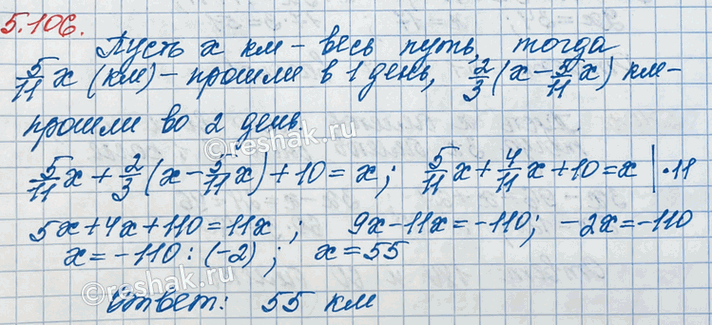 5.106.
Пусть x км – весь путь, тогда
5/11 x (км) – прошли в 1 день, 2/3 (x – 5/11 x) км –
прошли во 2 день
5/11 x + 2/3 (x – 5/11 x) + 10 = x ; 5/11 x + 4/11 x + 10 = x | · 11
5x + 4x + 110 = 11x ; 9x – 11x = –110 ; –2x = –110
x = –110 : (–2) ; x = 55
Ответ: 55 км
reshak.ru